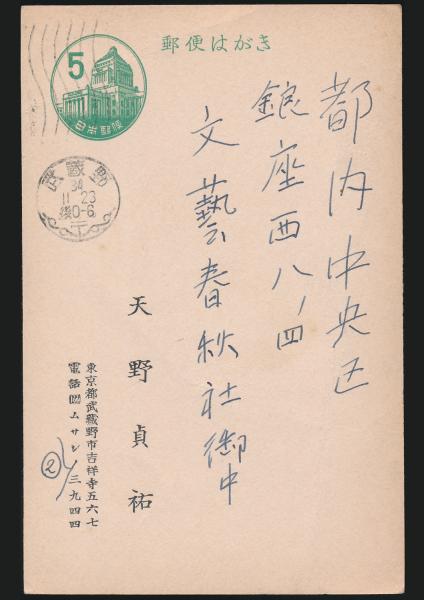 郵便はがき
5
日本郵便
武蔵野
34
11.23
後0-6
都内中央区
銀座西八ノ四
文藝春秋社御中
天野貞祐
東京都武蔵野市吉祥寺五六七
電話ムサシノ三九四四
②